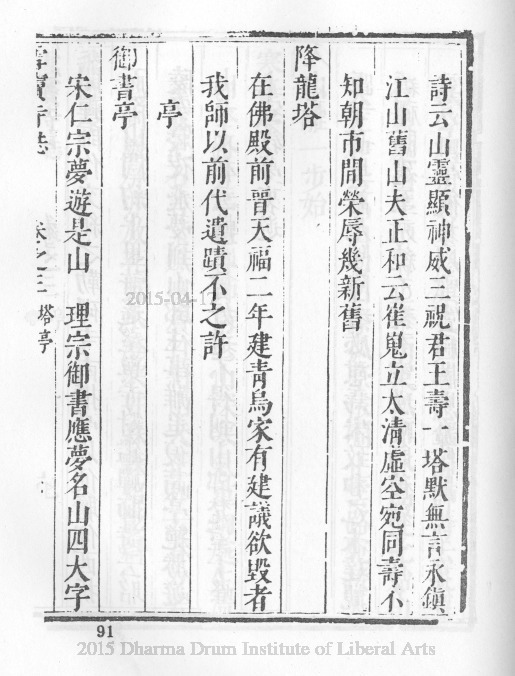 詩云山靈顯神威三祝君王壽一塔默無言永鎮
江山舊山夫正和云崔嵬立太清虛空宛同壽不
知朝市閒榮辱幾新舊
降龍塔
在佛殿前晉天福二年建青烏家有建議欲毀者
我師以前代遺蹟不之許
亭
御書亭
宋仁宗夢遊是山 理宗御書應夢名山四大字
寶寺志 卷之三 塔亭
2015-04-17
91
2015 Dharma Drum Institute of Liberal Arts